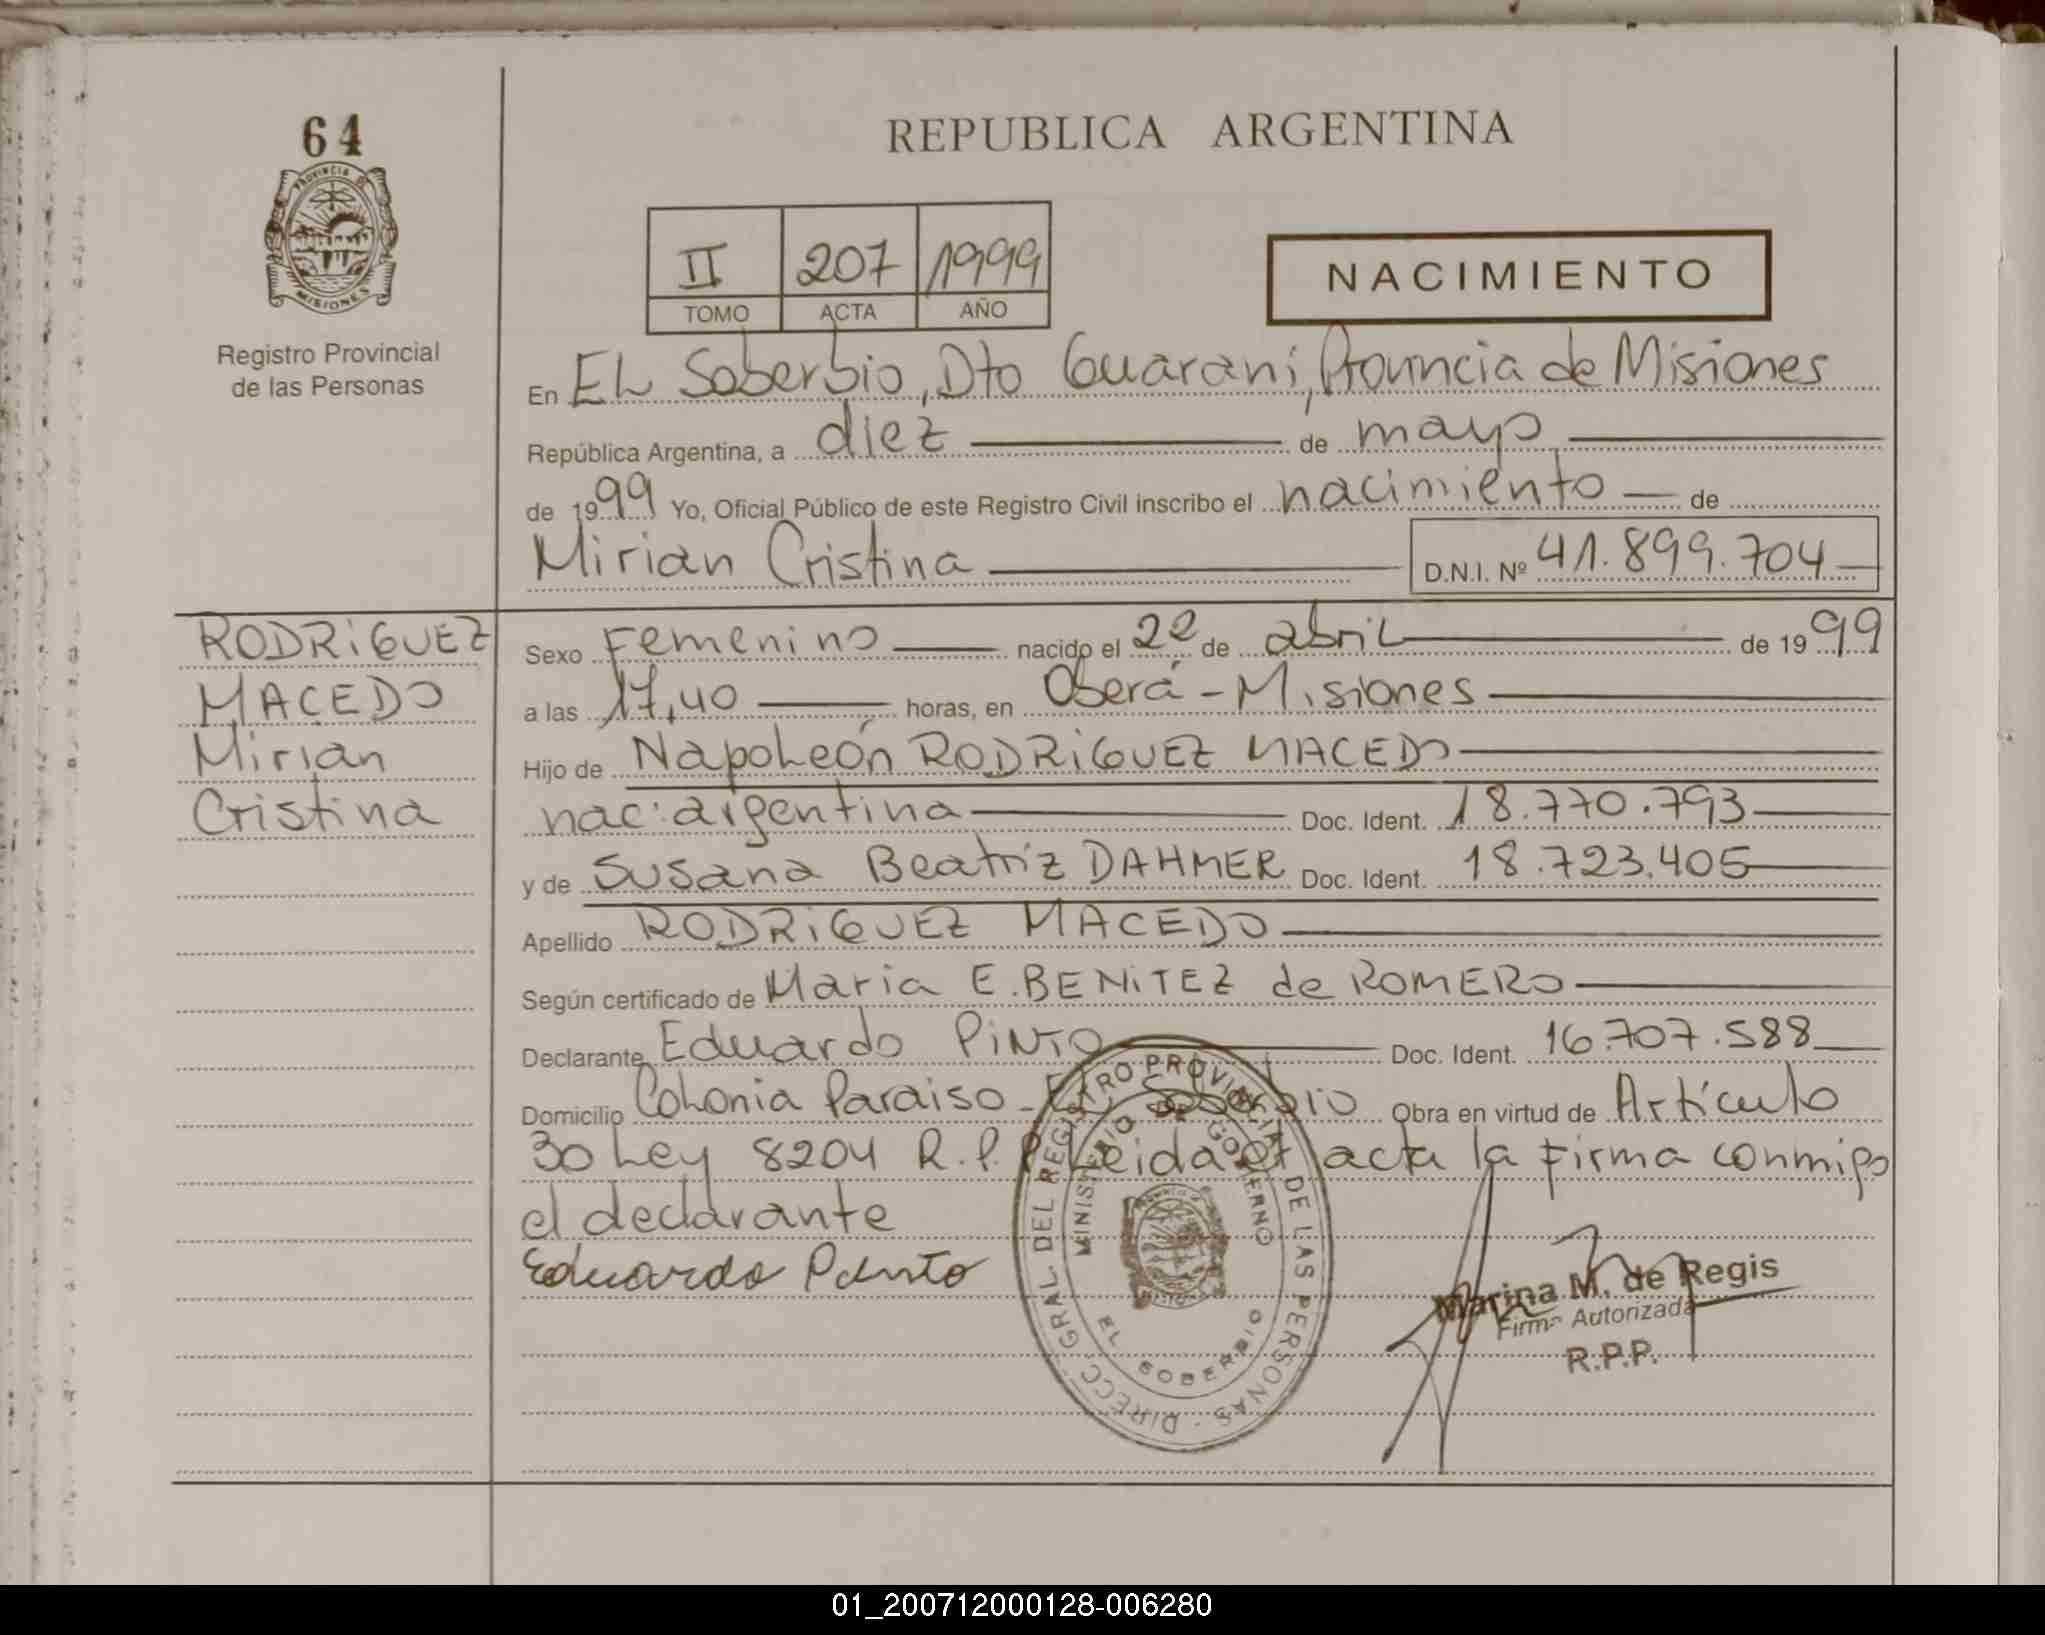 64
REPUBLICA ARGENTINA
PROVINCIA DE
MISIONES
Registro Provincial
de las Personas
II 207 1999
TOMO ACTA AÑO
NACIMIENTO
En EL Soberbio, Dto Guaraní, Provincia de Misiones
República Argentina, a diez de mayo
de 1999 Yo, Oficial Público de este Registro Civil inscribo el nacimiento de
Mirian Cristina D.N.I. Nº 41.899.704
RODRIGUEZ
MACEDO
Mirian
Cristina
Sexo Femenino nacido el 22 de abril de 1999
a las 17,40 horas, en Oberá - Misiones
Hijo de Napoleón RODRIGUEZ MACEDO
nac. argentina Doc. Ident. 18.770.793
y de Susana Beatriz DAHMER Doc. Ident. 18.723.405
Apellido RODRIGUEZ MACEDO
Según certificado de Maria E. BENITEZ de ROMERO
Declarante Eduardo PINTO Doc. Ident. 16.707.588
Domicilio Colonia Paraiso - EL Soberbio Obra en virtud de Artículo
30 Ley 8204 R.P.P. Leida el acta la firma conmigo
el declarante
Eduardo Pinto
DIRECC. GRAL. DEL REGISTRO PROVINCIAL DE LAS PERSONAS -
MINISTERIO DE GOBIERNO
EL SOBERBIO
Marina M. de Regis
Firma Autorizada
R.P.P.
01_200712000128-006280